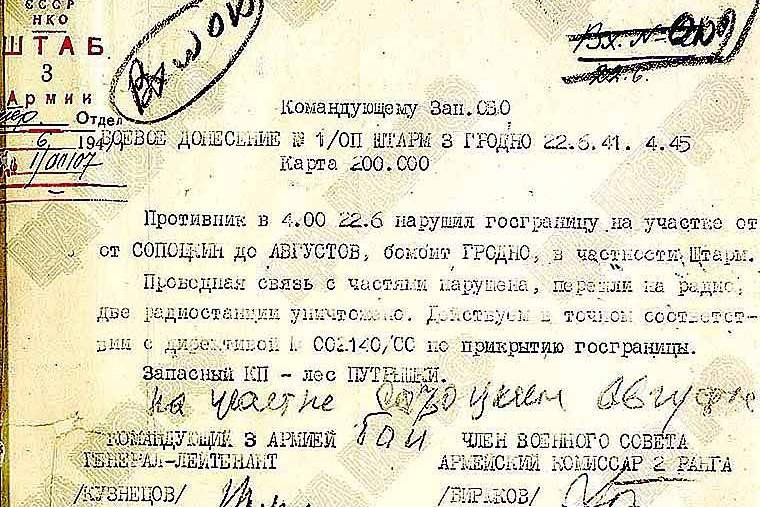 СССР
НКО
ШТАБ
3
Армии
Отдел
6 194
Вх. №
22.6.
Командующему Зап.ОВО
БОЕВОЕ ДОНЕСЕНИЕ № 1/ОП ШТАРМ 3 ГРОДНО 22.6.41. 4.45
Карта 200.000
Противник в 4.00 22.6 нарушил госграницу на участке от
от СОПОЦКИН до АВГУСТОВ, бомбит ГРОДНО, в частности Штарм.
Проводная связь с частями нарушена, перешли на радио,
две радиостанции уничтожено. Действуем в точном соответст-
вии с директивой № 002140/СС по прикрытию госграницы.
Запасный КП - лес ПУТРЫШКИ.
на участке
КОМАНДУЮЩИЙ 3 АРМИЕЙ ЧЛЕН ВОЕННОГО СОВЕТА
ГЕНЕРАЛ-ЛЕЙТЕНАНТ АРМЕЙСКИЙ КОМИССАР 2 РАНГА
/КУЗНЕЦОВ/ /БИРЮКОВ/